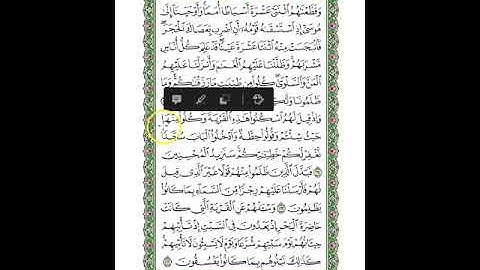 وَقَطَّعْنَٰهُمُ ٱثْنَتَىْ عَشْرَةَ أَسْبَاطًا أُمَمًا ۚ وَأَوْحَيْنَآ إِلَىٰ
مُوسَىٰٓ إِذِ ٱسْتَسْقَىٰهُ قَوْمُهُۥٓ أَنِ ٱضْرِب بِّعَصَاكَ ٱلْحَجَرَ ۖ
فَٱنۢبَجَسَتْ مِنْهُ ٱثْنَتَا عَشْرَةَ عَيْنًا ۖ قَدْ عَلِمَ كُلُّ أُنَاسٍ
مَّشْرَبَهُمْ ۚ وَظَلَّلْنَا عَلَيْهِمُ ٱلْغَمَٰمَ وَأَنزَلْنَا عَلَيْهِمُ
ٱلْمَنَّ وَٱلسَّلْوَىٰ ۖ كُلُوا۟ مِن طَيِّبَٰتِ مَا رَزَقْنَٰكُمْ ۚ وَمَا
ظَلَمُونَا وَلَٰكِن
وَإِذْ قِيلَ لَهُمُ ٱسْكُنُوا۟ هَٰذِهِ ٱلْقَرْيَةَ وَكُلُوا۟ مِنْهَا
حَيْثُ شِئْتُمْ وَقُولُوا۟ حِطَّةٌ وَٱدْخُلُوا۟ ٱلْبَابَ سُجَّدًا
نَّغْفِرْ لَكُمْ خَطِيٓـَٰٔتِكُمْ ۚ سَنَزِيدُ ٱلْمُحْسِنِينَ
فَبَدَّلَ ٱلَّذِينَ ظَلَمُوا۟ مِنْهُمْ قَوْلًا غَيْرَ ٱلَّذِى قِيلَ
لَهُمْ فَأَرْسَلْنَا عَلَيْهِمْ رِجْزًا مِّنَ ٱلسَّمَآءِ بِمَا كَانُوا۟
يَظْلِمُونَ وَسْـَٔلْهُمْ عَنِ ٱلْقَرْيَةِ ٱلَّتِى كَانَتْ
حَاضِرَةَ ٱلْبَحْرِ إِذْ يَعْدُونَ فِى ٱلسَّبْتِ إِذْ تَأْتِيهِمْ
حِيتَانُهُمْ يَوْمَ سَبْتِهِمْ شُرَّعًا وَيَوْمَ لَا يَسْبِتُونَ ۙ لَا تَأْتِيهِمْ ۚ
كَذَٰلِكَ نَبْلُوهُم بِمَا كَانُوا۟ يَفْسُقُونَ